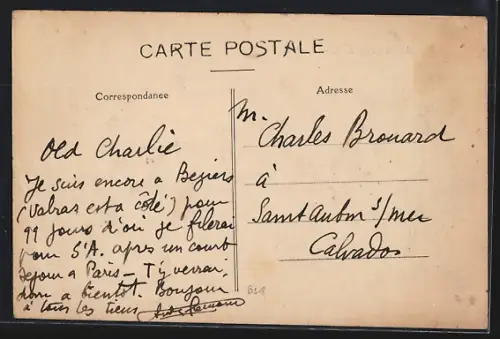 CARTE POSTALE
Correspondance
Adresse
Old Charlie
Je suis encore a Beziers
(Valras est a côté) pour
99 jours d'où je filerai
pour S'A. apres un court
Sejour a Paris - T'y verrai
donc a bientôt. Bonjour
à tous les tiens
M.
Charles Brouard
à
Saint Aubin s/mer
Calvados